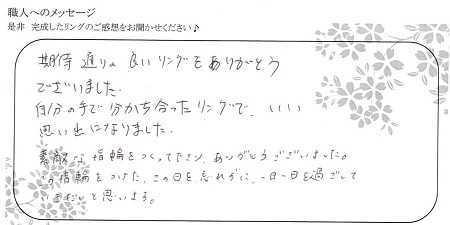 職人へのメッセージ
是非 完成したリングのご感想をお聞かせください♪
期待通りの良いリングをありがとう
ございました.
自分の手で分かち合ったリングで、いい
思い出になりました.
素敵な指輪をつくって下さり、ありがとうございました。
この指輪をつけた、この日を忘れずに、一日一日を過ごして
いきたいと思います。